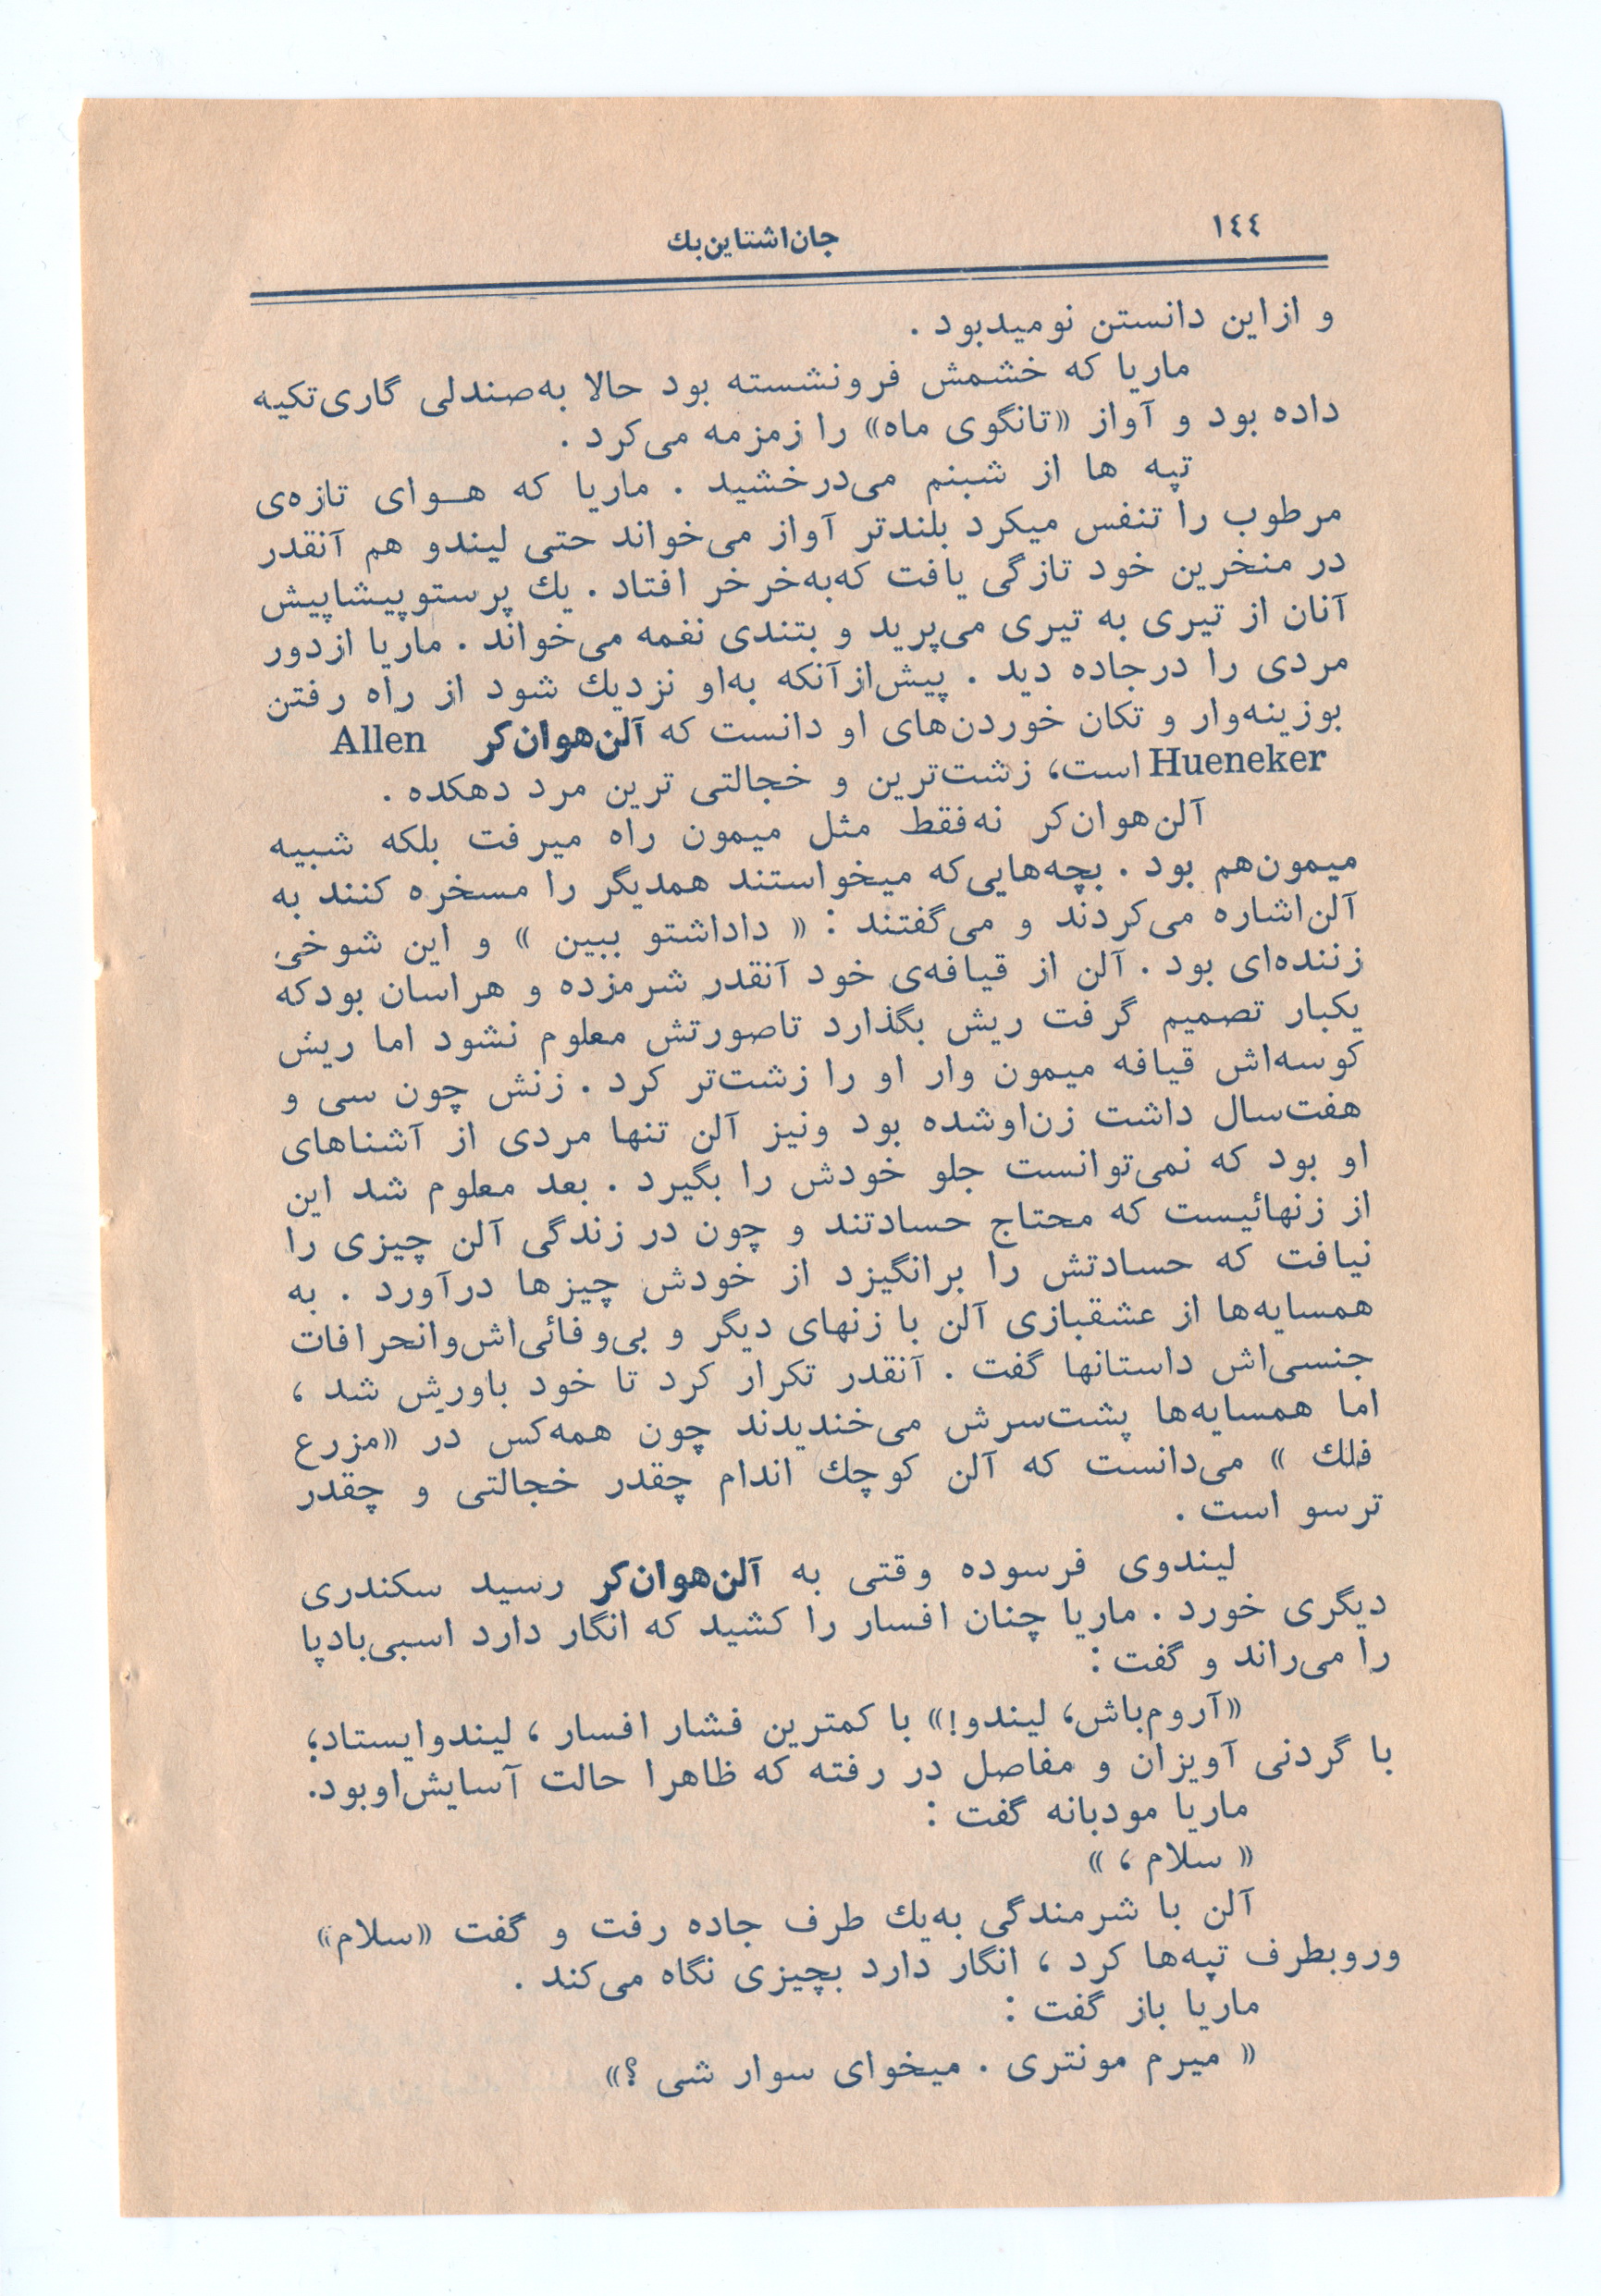 ١٤٤
جان‌اشتاین‌بك
و ازاین دانستن نومیدبود .
ماریا که خشمش فرونشسته بود حالا به‌صندلی گاری‌تکیه
داده بود و آواز «تانگوی ماه» را زمزمه می‌کرد .
تپه ها از شبنم می‌درخشید . ماریا که هـوای تازه‌ی
مرطوب را تنفس میکرد بلندتر آواز می‌خواند حتی لیندو هم آنقدر
در منخرین خود تازگی یافت که‌به‌خرخر افتاد . یك پرستوپیشاپیش
آنان از تیری به تیری می‌پرید و بتندی نغمه می‌خواند . ماریا ازدور
مردی را درجاده دید . پیش‌ازآنکه به‌او نزدیك شود از راه رفتن
بوزینه‌وار و تکان خوردن‌های او دانست که آلن‌هوان‌کر Allen
Hueneker است، زشت‌ترین و خجالتی ترین مرد دهکده .
آلن‌هوان‌کر نه‌فقط مثل میمون راه میرفت بلکه شبیه
میمون‌هم بود . بچه‌هایی‌که میخواستند همدیگر را مسخره کنند به
آلن‌اشاره می‌کردند و می‌گفتند : « داداشتو ببین » و این شوخی
زننده‌ای بود . آلن از قیافه‌ی خود آنقدر شرمزده و هراسان بودکه
یکبار تصمیم گرفت ریش بگذارد تاصورتش معلوم نشود اما ریش
کوسه‌اش قیافه میمون وار او را زشت‌تر کرد . زنش چون سی و
هفت‌سال داشت زن‌اوشده بود ونیز آلن تنها مردی از آشناهای
او بود که نمی‌توانست جلو خودش را بگیرد . بعد معلوم شد این
از زنهائیست که محتاج حسادتند و چون در زندگی آلن چیزی را
نیافت که حسادتش را برانگیزد از خودش چیزها درآورد . به
همسایه‌ها از عشقبازی آلن با زنهای دیگر و بی‌وفائی‌اش‌وانحرافات
جنسی‌اش داستانها گفت . آنقدر تکرار کرد تا خود باورش شد ،
اما همسایه‌ها پشت‌سرش می‌خندیدند چون همه‌کس در «مزرع
فلك » می‌دانست که آلن کوچك اندام چقدر خجالتی و چقدر
ترسو است .
لیندوی فرسوده وقتی به آلن‌هوان‌کر رسید سکندری
دیگری خورد . ماریا چنان افسار را کشید که انگار دارد اسبی‌بادپا
را می‌راند و گفت :
«آروم‌باش، لیندو!» با کمترین فشار افسار ، لیندوایستاد؛
با گردنی آویزان و مفاصل در رفته که ظاهرا حالت آسایش‌اوبود.
ماریا مودبانه گفت :
« سلام ، »
آلن با شرمندگی به‌یك طرف جاده رفت و گفت «سلام»
وروبطرف تپه‌ها کرد ، انگار دارد بچیزی نگاه می‌کند .
ماریا باز گفت :
« میرم مونتری . میخوای سوار شی ؟»